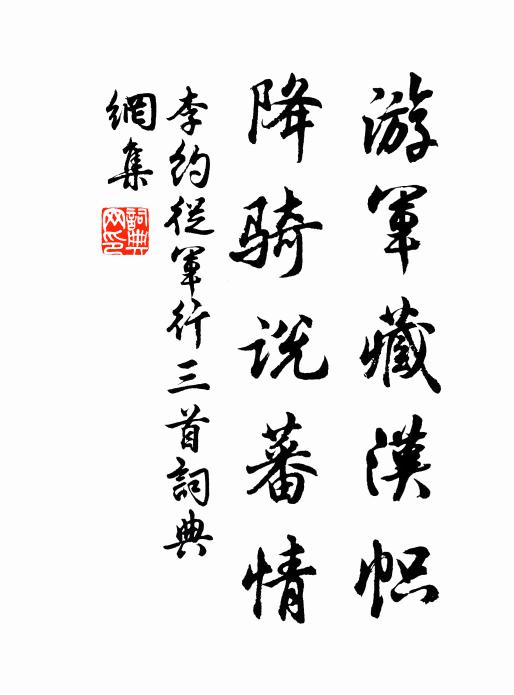 游軍藏漢帜
降骑说蕃情
李約從軍行三首詞典
網集
詞典網印